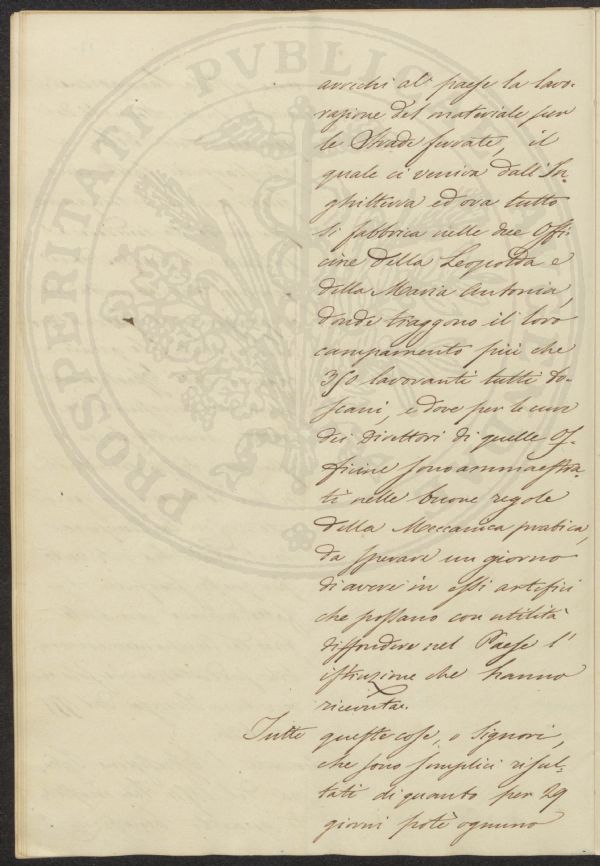 PROSPERITATI PVBLICAE
arrechi al paese la lavo-
razione del materiale per
le Strade ferrate, il
quale ci veniva dall'In-
ghilterra ed ora tutto
si fabbrica nelle due Offi
cine della Leopolda e
della Maria Antonia,
donde traggono il loro
campamento più che
350 lavoranti tutti To-
scani, e dove per le cure
dei Direttori di quelle Of-
ficine sono ammaestra-
ti nelle buone regole
della Meccanica pratica,
da sperare un giorno
di avere in essi artefici
che possano con utilità
diffondere nel Paese l'
istruzione che hanno
ricevuta.
Tutte queste cose, o Signori,
che sono semplici risul-
tati di quanto per 29
giorni potè ognuno